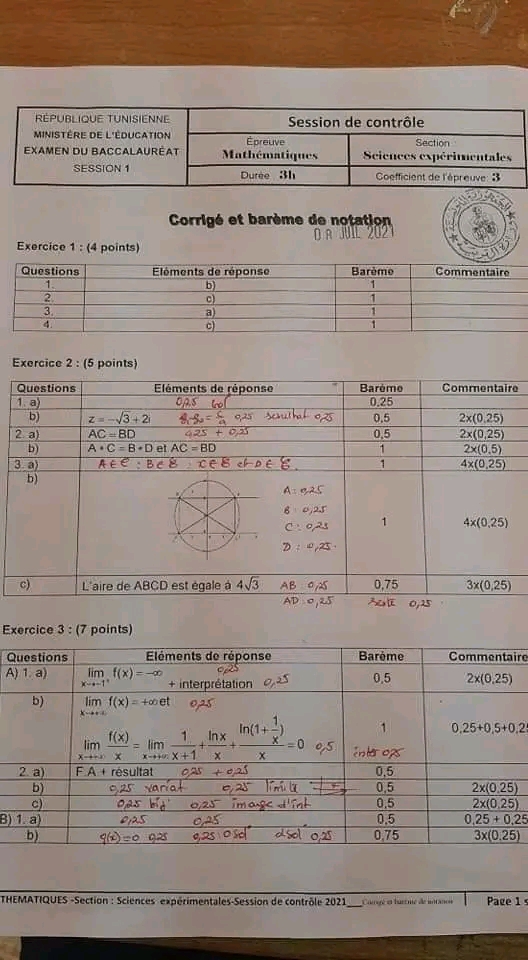 RÉPUBLIQUE TUNISIENNE
MINISTÈRE DE L'ÉDUCATION
EXAMEN DU BACCALAURÉAT
SESSION 1
Session de contrôle
Épreuve
Mathématiques
Section :
Sciences expérimentales
Durée 3h
Coefficient de l'épreuve: 3
Corrigé et barème de notation
08 JUIL 2021
Exercice 1 : (4 points)
Questions Eléments de réponse Barème Commentaire
1. b) 1
2. c) 1
3. a) 1
4. c) 1
Exercice 2 : (5 points)
Questions Eléments de réponse Barème Commentaire
1. a) 0,25 0,25
b) z = -√3 + 2i 0,25 resultat 0,25 0,5 2x(0,25)
2. a) AC = BD 0,25 + 0,25 0,5 2x(0,25)
b) A * C = B * D et AC = BD 1 2x(0,5)
3. a) 1 4x(0,25)
b) 1 4x(0,25)
A : 0,25
B : 0,25
C : 0,25
D : 0,25
c) L'aire de ABCD est égale à 4√3 AB : 0,25 0,75 3x(0,25)
AD : 0,25 0,25
Exercice 3 : (7 points)
Questions Eléments de réponse Barème Commentaire
A) 1. a) lim x→-1⁺ f(x) = -∞ 0,25 + interprétation 0,25 0,5 2x(0,25)
b) lim x→+∞ f(x) = +∞ et 0,25
lim x→+∞ f(x)/x = lim x→+∞ 1/(x+1) + lnx/x + ln(1+1/x)/x = 0 0,5 1 inter 0,25 0,25+0,5+0,25
2. a) F.A + résultat 0,25 + 0,25 0,5
b) 0,25 variat 0,25 limite 0,5 2x(0,25)
c) 0,25 bij 0,25 image d'int 0,5 2x(0,25)
B) 1. a) 0,25 0,25 0,5 0,25 + 0,25
b) g(x)=0 0,25 0,25 : 0 sol 0,25 0,75 3x(0,25)
THEMATIQUES -Section : Sciences expérimentales-Session de contrôle 2021___Corrigé et barème de notation Page 1 s